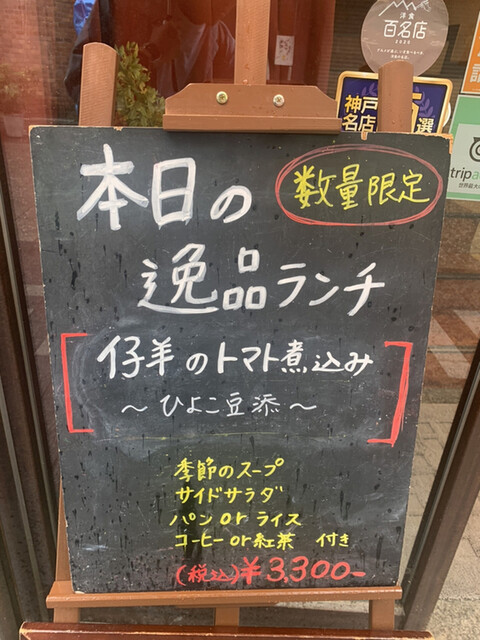 洋食
百名店
2020
神戸
名店
選
trip
世界最大の
本日の
数量限定
逸品ランチ
仔羊のトマト煮込み
～ひよこ豆添～
季節のスープ
サイドサラダ
パン or ライス
コーヒー or 紅茶 付き
(税込)¥3,300-